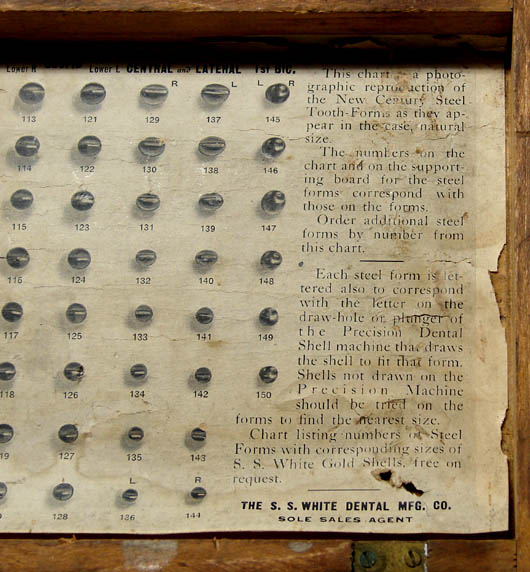 Lower R Lower L CENTRAL and LATERAL 1st BIC.
R L L R
113 121 129 137 145
114 122 130 138 146
115 123 131 139 147
116 124 132 140 148
117 125 133 141 149
118 126 134 142 150
19 127 135 143
L R
128 136 144
This chart a photo-
graphic reproduction of
the New Century Steel
Tooth-Forms as they ap-
pear in the case, natural
size.
The numbers on the
chart and on the support-
ing board for the steel
forms correspond with
those on the forms.
Order additional steel
forms by number from
this chart.
Each steel form is let-
tered also to correspond
with the letter on the
draw-hole or plunger of
the Precision Dental
Shell machine that draws
the shell to fit that form.
Shells not drawn on the
Precision Machine
should be tried on the
forms to find the nearest size.
Chart listing numbers of Steel
Forms with corresponding sizes of
S. S. White Gold Shells, free on
request.
THE S. S. WHITE DENTAL MFG. CO.
SOLE SALES AGENT